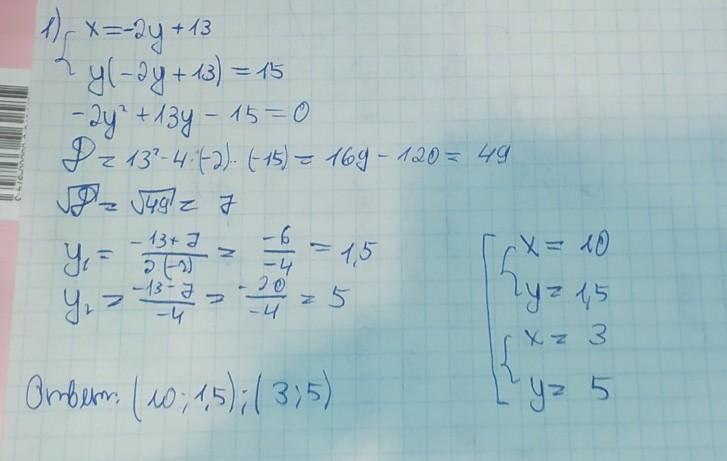 1) { x = -2y + 13
y(-2y + 13) = 15
-2y² + 13y - 15 = 0
D = 13² - 4·(-2)·(-15) = 169 - 120 = 49
√D = √49 = 7
y₁ = (-13+7)/(2(-2)) = (-6)/(-4) = 1,5
y₂ = (-13-7)/(-4) = (-20)/(-4) = 5
[ { x = 10
y = 1,5
{ x = 3
y = 5
Ответ: (10; 1,5); (3; 5)